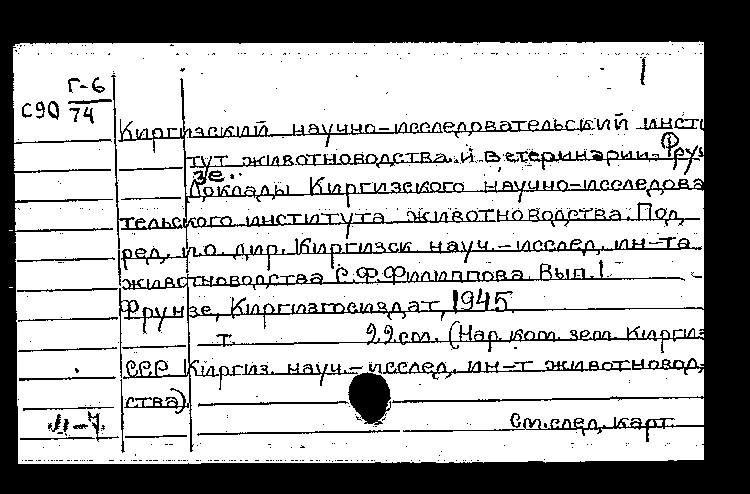 Г-6
С90 74
1
Киргизский научно-исследовательский инсти
тут животноводства и ветеринарии, Фрун
зе.
Доклады Киргизского научно-исследова
тельского института животноводства. Под
ред. и.о. дир. Киргизск науч.-исслед. ин-та
животноводства С.Ф.Филиппова Вып. 1.
Фрунзе, Киргизгосиздат, 1945.
т. 22см. (Нар. ком. зем. Киргиз
ССР Киргиз. науч.-исслед. ин-т животновод,
ства).
См. след. карт